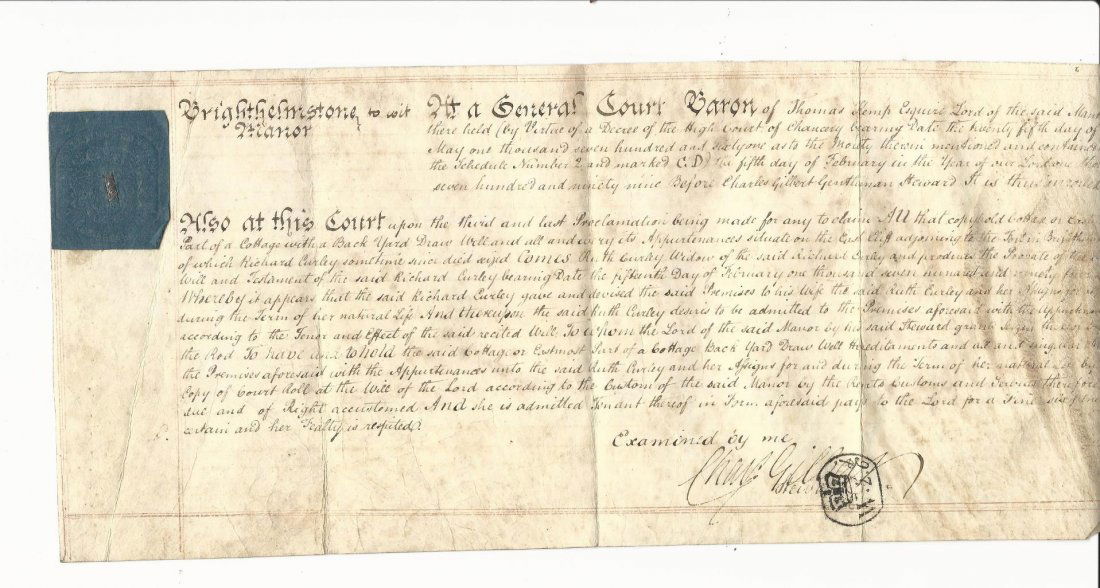 Brighthelmstone to wit
Manor
At a General Court Baron of Thomas Kemp Esquire Lord of the said Mano
there held (by Virtue of a Decree of the High Court of Chancery bearing Date the twenty fifth day of
May one thousand seven hundred and sixtyone as to the Moiety therein mentioned and contained
the Schedule Number 2 and marked C.D) the fifth day of February in the Year of our Lord one
seven hundred and ninety nine Before Charles Gilbert Gentleman Steward It is thus inrolled
Also at this Court upon the third and last Proclamation being made for any to claim All that copyhold Cottage or
Part of a Cottage with a Back Yard Draw Well and all and every its Appurtenances situate on the East Cliff adjoining to the in
of which Richard Curley sometime since died seized Comes Ruth Curley Widow of the said Richard Curley and produces the Probate of the
Will and Testament of the said Richard Curley bearing Date the fifteenth Day of February one thousand seven hundred and ninety
Whereby it appears that the said Richard Curley gave and devised the said Premises to his Wife the said Ruth Curley and her Assigns for
during the Term of her natural Life And thereupon the said Ruth Curley desires to be admitted to the Premises aforesaid with the
according to the Tenor and Effect of the said recited Will To whom the Lord of the said Manor by his said Steward grants Seizin thereof
the Rod To have and to hold the said Cottage or Eastmost Part of a Cottage Back Yard Draw Well Hereditaments and all and singular
the Premises aforesaid with the Appurtenances unto the said Ruth Curley and her Assigns for and during the Term of her natural Life by
Copy of Court Roll at the Will of the Lord according to the Custom of the said Manor by the Rents Customs and Services therefore
due and of Right accustomed And she is admitted Tenant thereof in Form aforesaid pays to the Lord for a Fine six pence
certain and her Fealty is respited
Examined by me
Chas. Gilbert
Steward